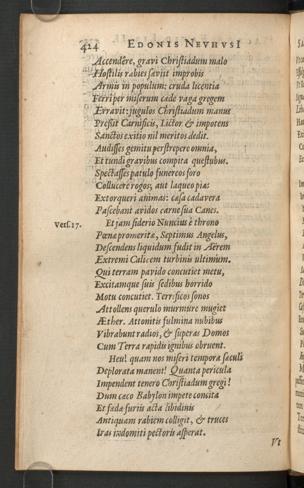 424 EDONIS NEVHVSI
Accendêre, gravi Christiadum malo
Hostilis rabies sæviit improbis
Armis in populum: cruda licentia
Ferri per miserum cæde vaga gregem
Erravit: jugulos Christiadum manus
Pressit Carnificis, Lictor & impotens
Sanctos exitio nil meritos dedit.
Audisses gemitu perstrepere omnia,
Et tundi gravibus compita questubus.
Spectasses patulo funereos foro
Collucere rogos; aut laqueo pias
Extorqueri animas: cæsa cadavera
Pascebant avidos carne sua Canes.
Vers. 17. Et jam siderio Nuncius è throno
Pœna promerita, Septimus Angelus,
Descendens liquidum fudit in Aërem
Extremi Calicem turbinis ultimum.
Qui terram pavido concutiet metu,
Excitamque suis sedibus horrido
Motu concutiet. Terrificos sonos
Attollens querulo murmure mugiet
Æther. Attonitis fulmina nubibus
Vibrabunt radios, & superas Domos
Cum Terra rapidis ignibus obruent.
Heu! quam nos miseri tempora sæculi
Deplorata manent! Quanta pericula
Impendent tenero Christiadum gregi!
Dum cæco Babylon impete concita
Et fœdæ furiis acta libidinis
Antiquam rabiem colligit, & truces
Iras indomiti pectoris asperat.
Vt